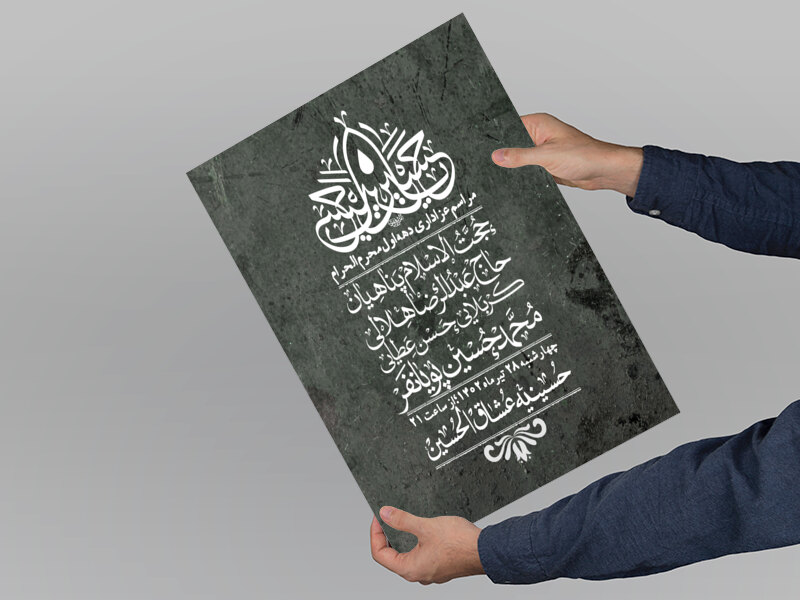 مراسم عزاداری دهه اول محرم الحرام
حُجَّتُ الاسلام پناهیان
حاج عَبْدُالرِضا هِلالی
کربلایی حَسَن عطایی
مُحَمَّدحُسِین پویانفر
چهارشنبه ۲۸ تیر ماه ۱۴۰۲؛ از ساعت ۲۱
حسینیه عشاق الحسین